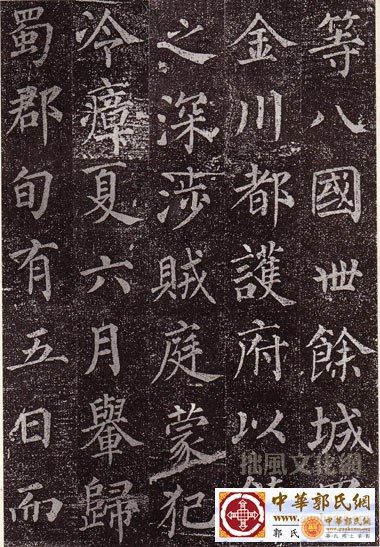 等八國丗餘城
金川都護府以
之深涉賊庭蒙犯
冷瘴夏六月轝歸
蜀郡旬有五日而
拙風文化網
中華郭氏網
www.
郭氏
中華郭氏網